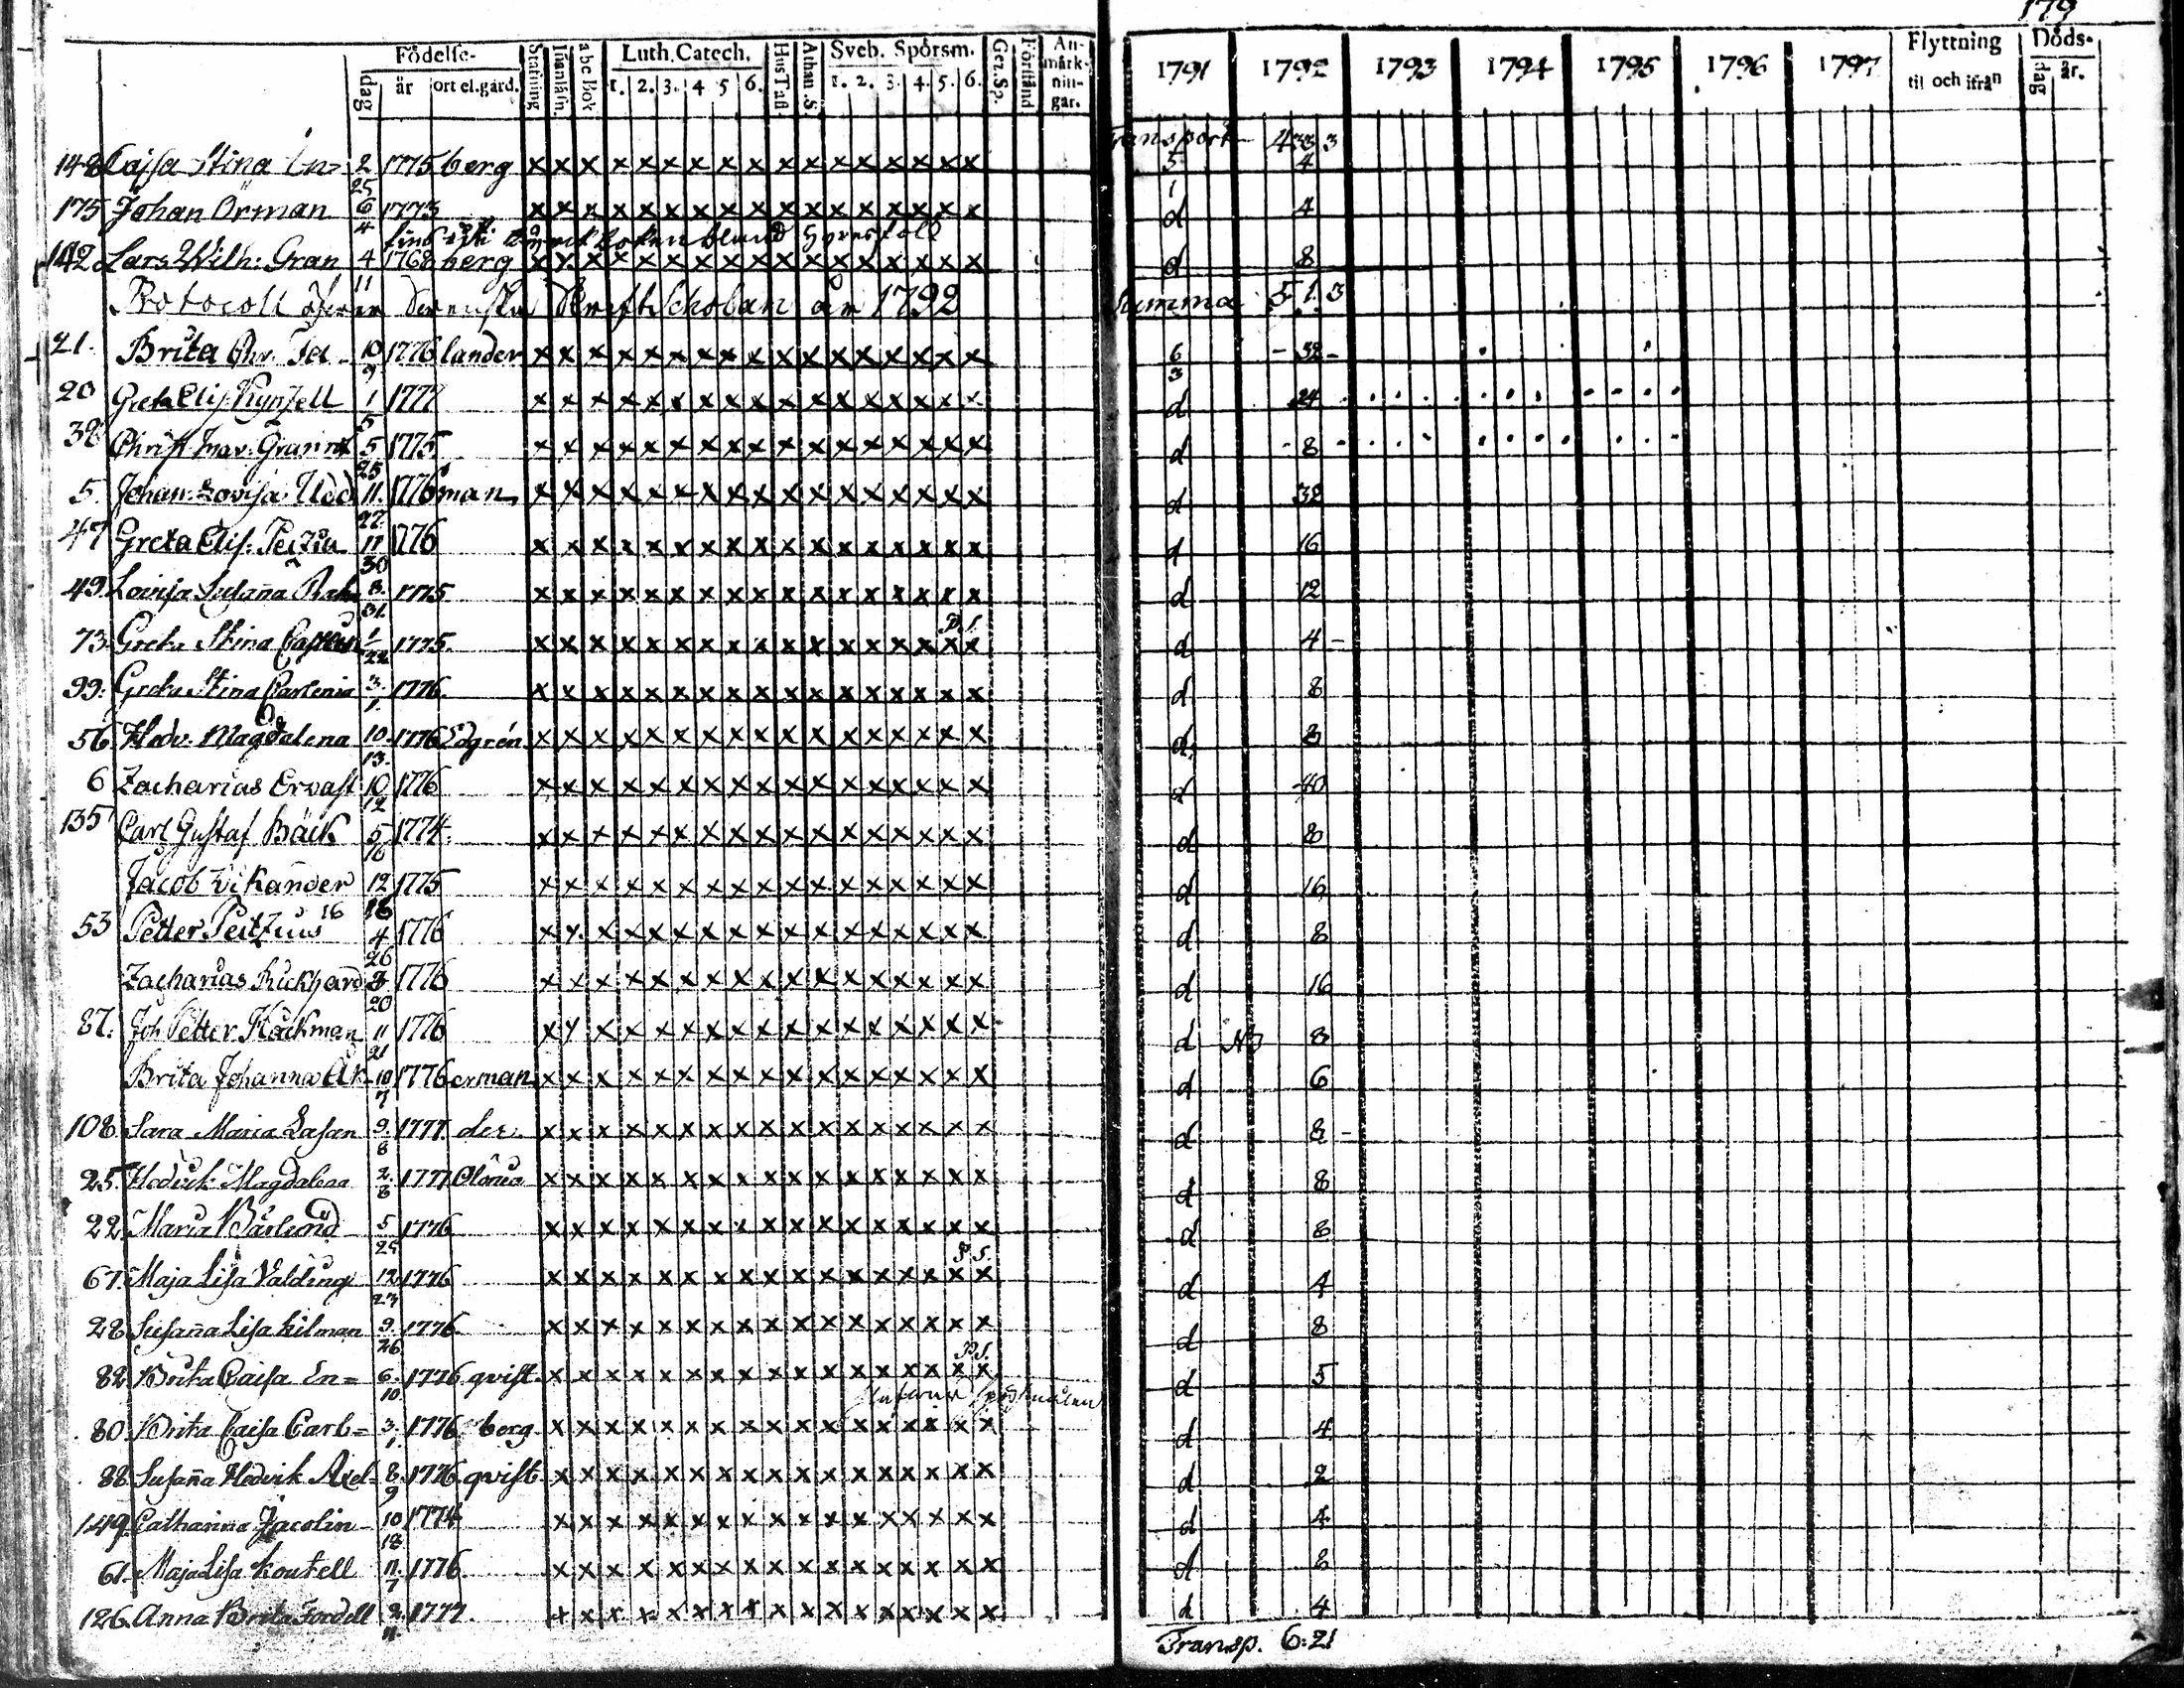 179
Födelse-
dag
år
ort el. gård.
Stafning
Innanläsn.
abc Bok
Luth. Catech.
1. 2. 3. 4 5 6.
Hus Tafl.
Athan. S.
Sveb. Spörsm.
1. 2. 3. 4. 5. 6.
Gez. Sp.
Förstånd
An-
märk-
nin-
gar.
1791 1792 1793 1794 1795 1796 1797
Flyttning
til och ifrån
Döds-
dag
år.
Transport 433 3
148 Cajsa Stina En= 2/25 1775 berg x x x x x x x x x x x x x x x x x 5/1 4
175 Johan Örman 6/4 1773 x x x x x x x x x x x x x x x x x d 4
142 Lars Wilh: Gran 4/11 1768 berg x x x x x x x x x x x x x x x x x d 8
Protocoll öfver Svenska Skriftscholan år 1792 Summa 51.3
21. Brita Chr. Tel- 10/9 1776 lander x x x x x x x x x x x x x x x x x 6/3 - 32 -
20 Greta Elis. Kynzell 1/5 1777 x x x x x x x x x x x x x x x x x d 24
38 5/25 1775 x x x x x x x x x x x x x x x x x d - 8 -
5. Johan. Lovisa Udd 11/27 1776 man x x x x x x x x x x x x x x x x x d 32
47 Greta Elis. Peitzia 11/30 1776 x x x x x x x x x x x x x x x x x d 16
49. Lovisa Susaña 8/31 1775 x x x x x x x x x x x x x x x x x d 12
73. Greta Stina 1/22 1775. x x x x x x x x x x x x x x x x x d 4 -
99. Greta Stina Carlenia 3/1 1776 x x x x x x x x x x x x x x x x x d 8
56. Hedv. Magdalena 10/13 1776 Edgrén x x x x x x x x x x x x x x x x x d 8
6 Zacharias Ervast 10/12 1776 x x x x x x x x x x x x x x x x x d 40
135 Carl Gustaf Bäck 5/16 1774 x x x x x x x x x x x x x x x x x d 8
Jacob Vikander 12/16 1775 x x x x x x x x x x x x x x x x x d 16
53 Petter Peitzius 4/26 1776 x x x x x x x x x x x x x x x x x d 8
Zacharias 1776 x x x x x x x x x x x x x x x x x d 16
87. Joh Petter Häckman 11/21 1776 x x x x x x x x x x x x x x x x x d NB 8
Brita Johanna Ak- 10/7 1776 erman x x x x x x x x x x x x x x x x x d 6
108. Sara Maria Lasan 9/8 1777 der x x x x x x x x x x x x x x x x x d 8 -
25. Hedvik Magdalena 2/8 1777 x x x x x x x x x x x x x x x x x d 8
22. Maria Bärlund 5/25 1776 x x x x x x x x x x x x x x x x x d 8
67. Maja Lisa Valding 12/23 1776 x x x x x x x x x x x x x x x x x d 4
28 Susaña Lisa Kilman 9/26 1776 x x x x x x x x x x x x x x x x x d 8
82 Brita Caisa En= 6/10 1776 qvist x x x x x x x x x x x x x x x x x d 5
80. Brita Caisa Carl= 3/1 1776 berg x x x x x x x x x x x x x x x x x d 4
88. Susaña Hedvik Axel- 8/9 1776 qvist x x x x x x x x x x x x x x x x x d 2
149 Catharina Jacolin 10/18 1774 x x x x x x x x x x x x x x x x x d 4
61. Maja Lisa 11/7 1776. x x x x x x x x x x x x x x x x x d 8
126. Anna Brita Fordell 2/11 1777. x x x x x x x x x x x x x x x x x d 4
Transp. 6:21